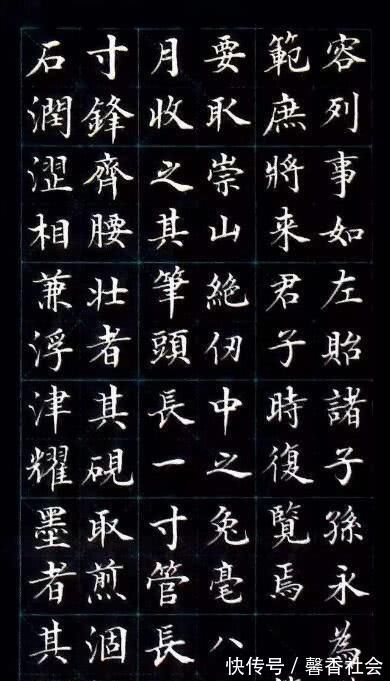 容列事如左貽諸子孫永為
範庶將来君子時復覽焉
要取崇山絕仞中之兔毫八
月收之其筆頭長一寸管長
寸鋒齊腰壯者其硯取煎涸
石潤澀相兼浮津耀墨者其
快传号 / 馨香社会